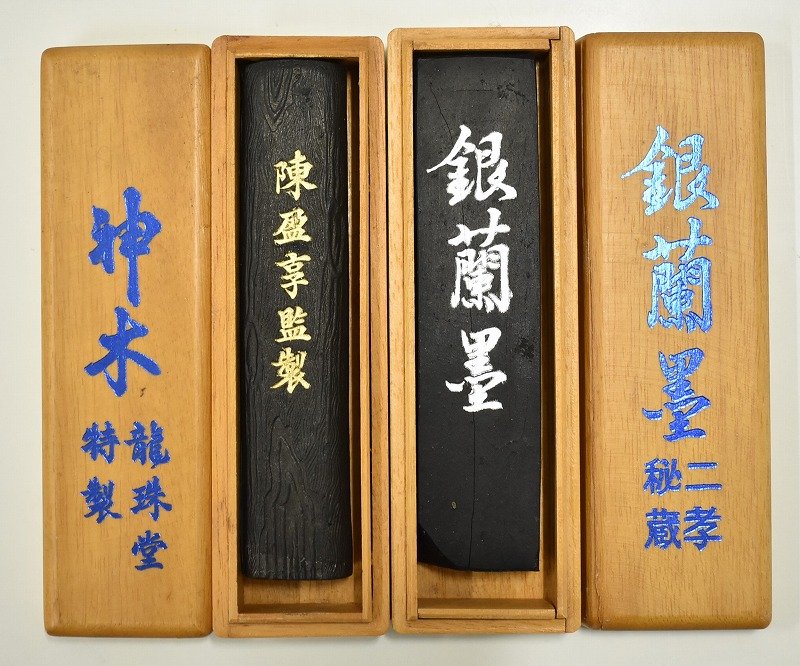 神木
龍珠堂
特製
陳盈享監製
銀蘭墨
銀蘭墨
二孝
秘蔵